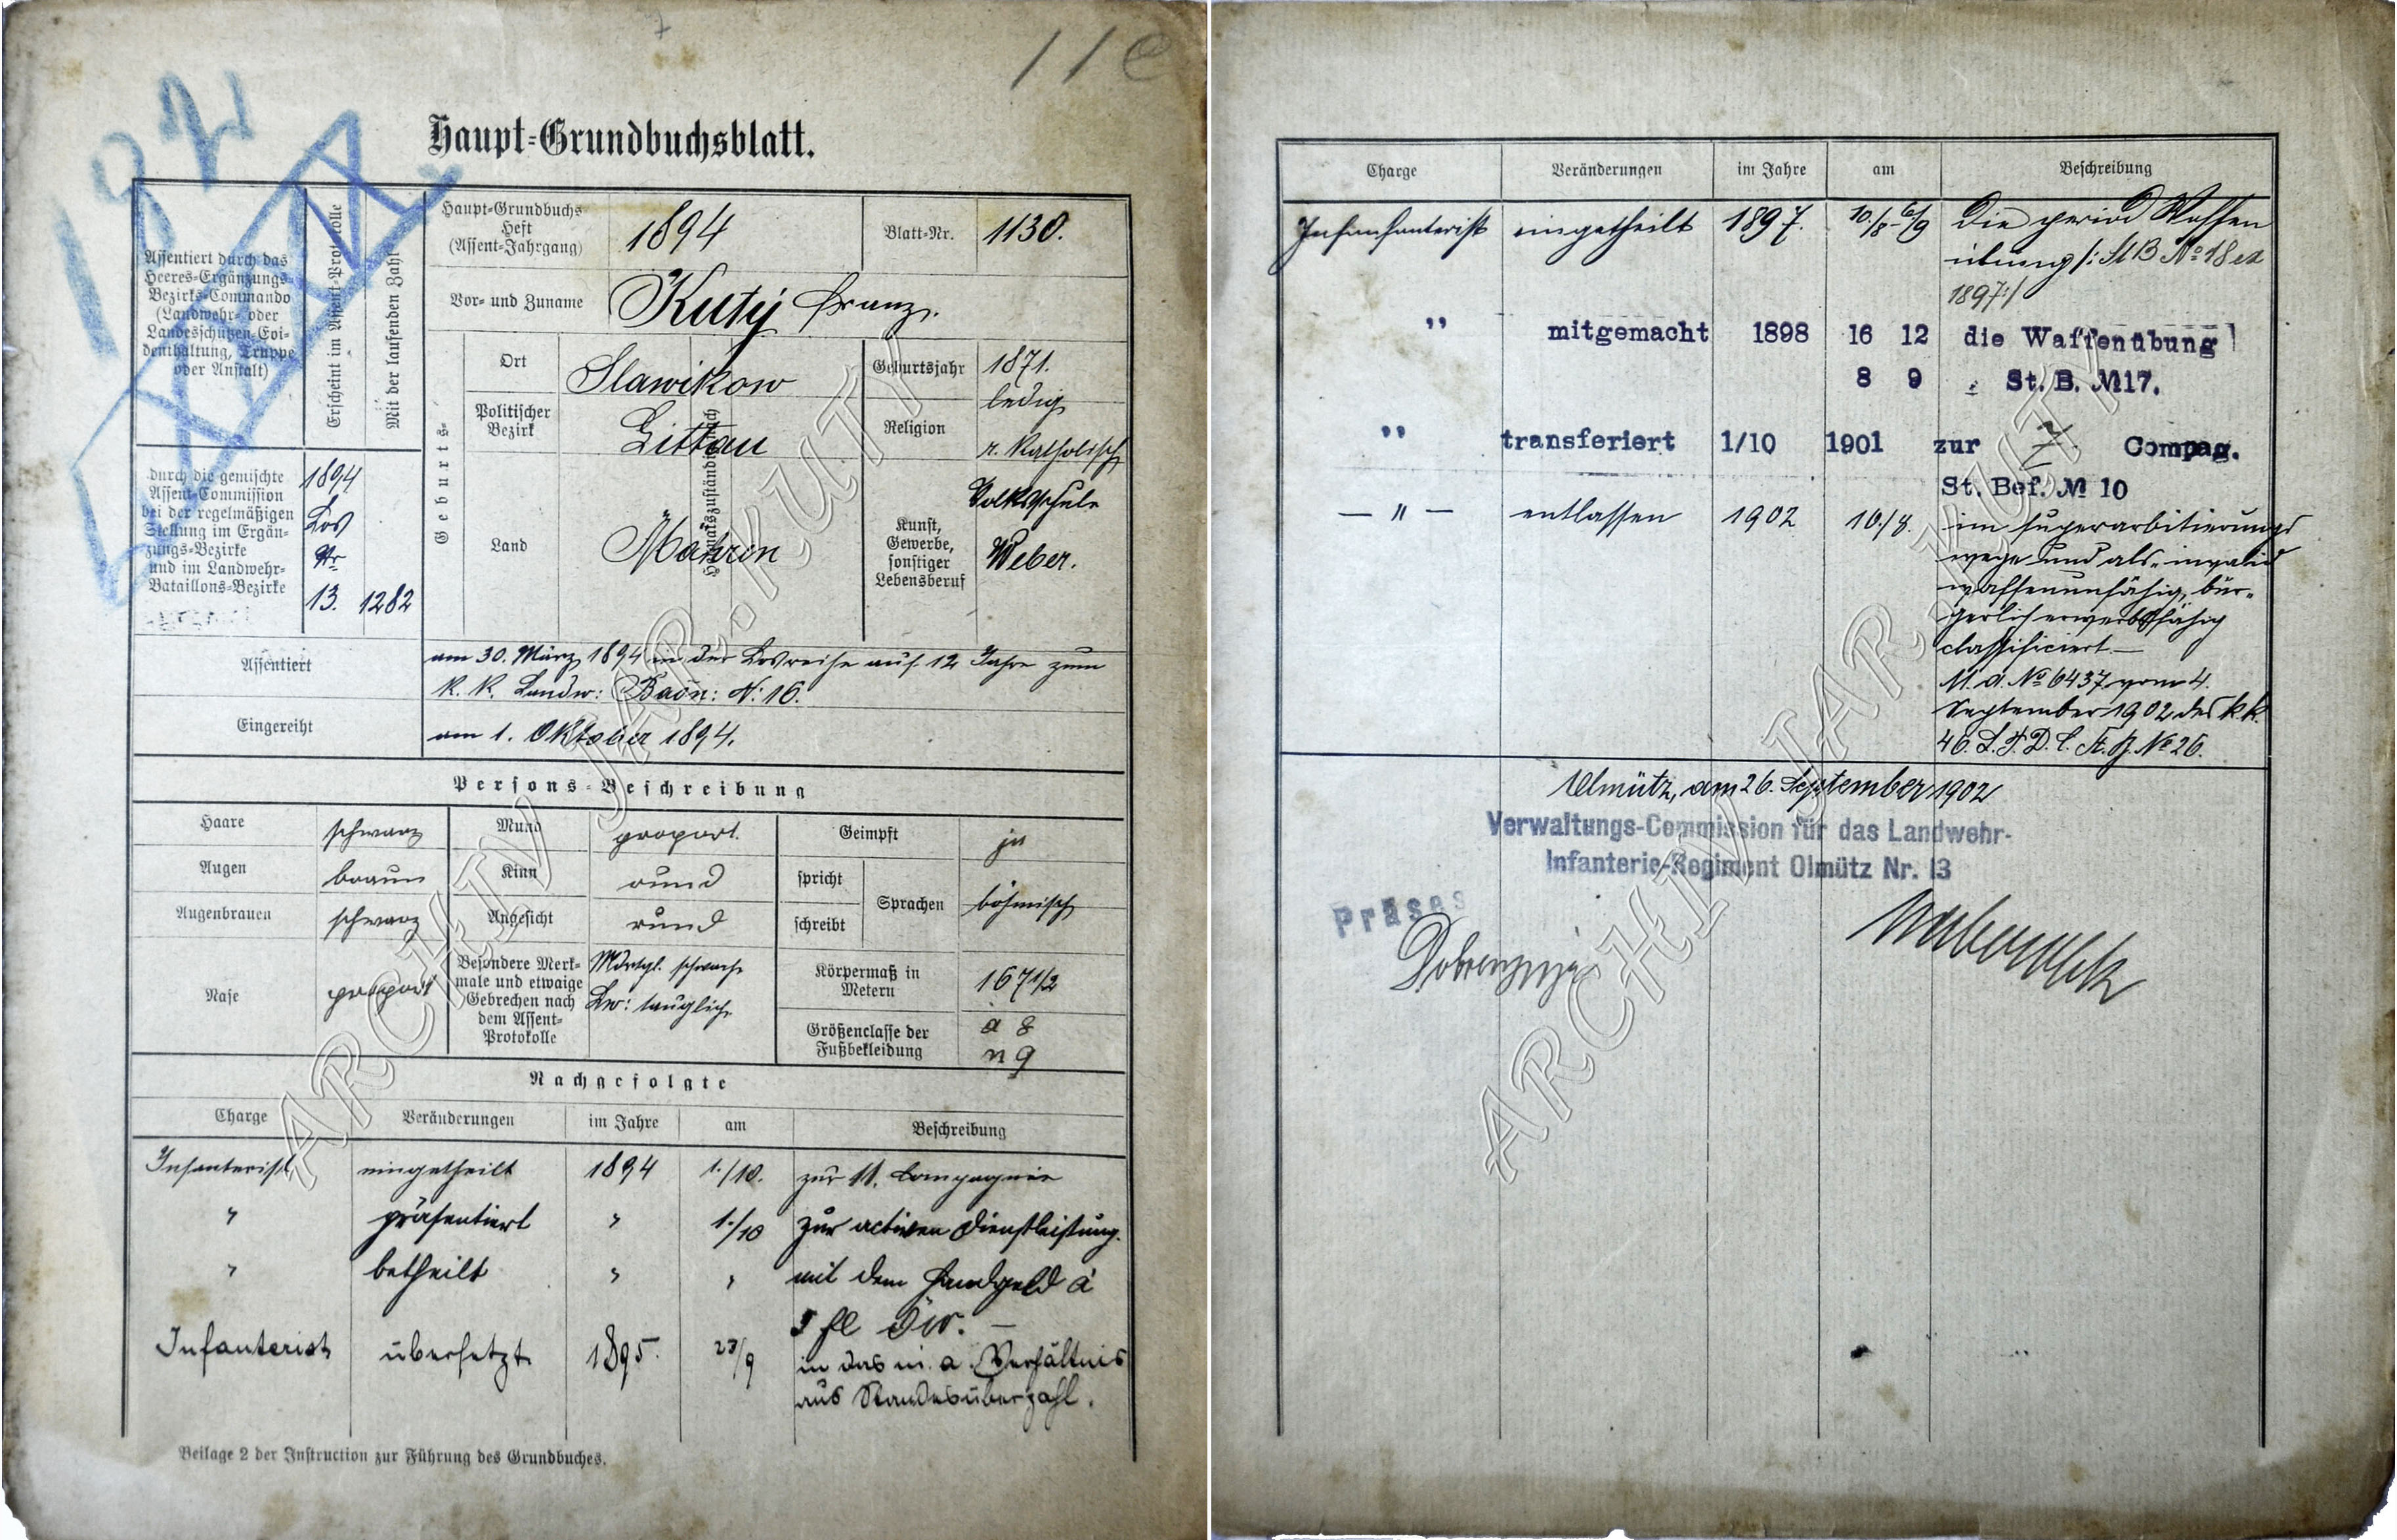 11e
Haupt-Grundbuchsblatt.
Assentiert durch das
Heeres-Ergänzungs-
Bezirks-Commando
(Landwehr- oder
Landesschützen-Evi-
denthaltung, Truppe
oder Anstalt)
Erscheint im Assent-Protokolle
Mit der laufenden Zahl
durch die gemischte
Assent-Commission
bei der regelmäßigen
Stellung im Ergän-
zungs-Bezirke
und im Landwehr-
Bataillons-Bezirke
1894
Los
Nr
13. 1282
Haupt-Grundbuchs-
Heft
(Assent-Jahrgang)
1894
Blatt-Nr.
1130.
Vor- und Zuname
Kutý Franz.
Geburts-
Ort
Slawikow
Politischer
Bezirk
Littau
Land
Mähren
Heimatszuständig
Geburtsjahr
1871.
ledig
Religion
r. katholisch
Volksschule
Kunst,
Gewerbe,
sonstiger
Lebensberuf
Weber.
Assentiert
am 30. März 1894 in der Losreihe auf 12 Jahre zum
k. k. Landw: Baon: N: 16.
Eingereiht
am 1. Oktober 1894.
Persons-Beschreibung
Haare schwarz
Augen braun
Augenbrauen schwarz
Nase proport
Mund proport.
Kinn rund
Angesicht rund
Besondere Merk-
male und etwaige
Gebrechen nach
dem Assent-
Protokolle
schwach
Lw: tauglich
Geimpft ja
spricht
schreibt
Sprachen
böhmisch
Körpermaß in
Metern
167 1/2
Größenclasse der
Fußbekleidung
a 8
n 9
Nachgefolgte
Charge Veränderungen im Jahre am Beschreibung
Infanterist eingetheilt 1894 1./10. zur 11. Compagnie
" präsentiert " 1./10 zur activen Dienstleistung.
" betheilt " " mit dem Handgeld à
3 fl Öw. —
Infanterist übersetzt 1895. 23/9 in das n. a. Verhältnis
aus Standesüberzahl.
Beilage 2 der Instruction zur Führung des Grundbuches.
Charge Veränderungen im Jahre am Beschreibung
Infanfanterist eingetheilt 1897. 10./8-6/9 Die period Waffen
übung /: St B No 18 ex
1897 :/
" mitgemacht 1898 16 12 die Waffenübung
8 9 St. B. № 17.
" transferiert 1/10 1901 zur 7. Compag.
St. Bef. № 10
— " — entlassen 1902 10./8. im superarbitrierungs
wege und als "invalid
waffenunfähig, bür-
gerlich erwerbsfähig
classificiert.—
M. A. No 6437 vom 4.
September 1902 des k.k.
46. L. T. D. C. St. B. No 26.
Olmütz, am 26. September 1902
Verwaltungs-Commission für das Landwehr-
Infanterie-Regiment Olmütz Nr. 13
Präses
ARCHIV JAR. KUTÝ
ARCHIV JAR. KUTÝ